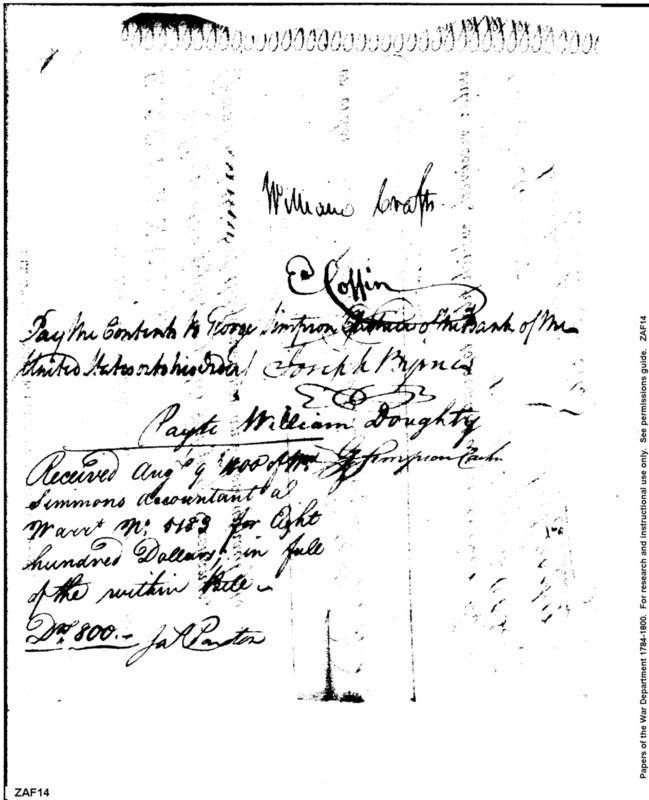 William Crafts
Eb Coffin
Pay the Contents to George Simpson Cashier of the Bank of the
United States or his order Joseph Byrnes
Pay to William Doughty
G Simpson Cashr
Received Augt 9th 1800 of Wm
Simmons accountant a
Warrt No. 5183 for Eight
hundred Dollars in full
of the within Bill
Drs 800.-
Papers of the War Department 1784-1800. For research and instructional use only. See permissions guide. ZAF14
ZAF14